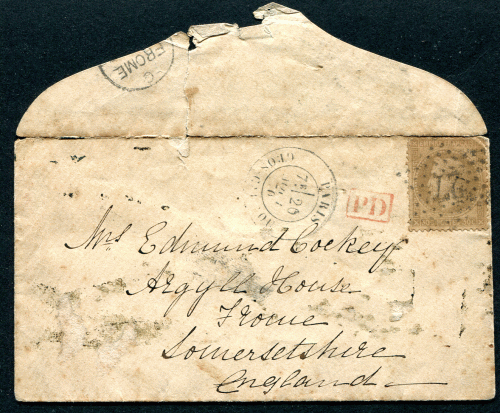 FROME
PARIS
26
PD
Mrs Edmund Cockey
Argyll House
Frome
Somersetshire
England